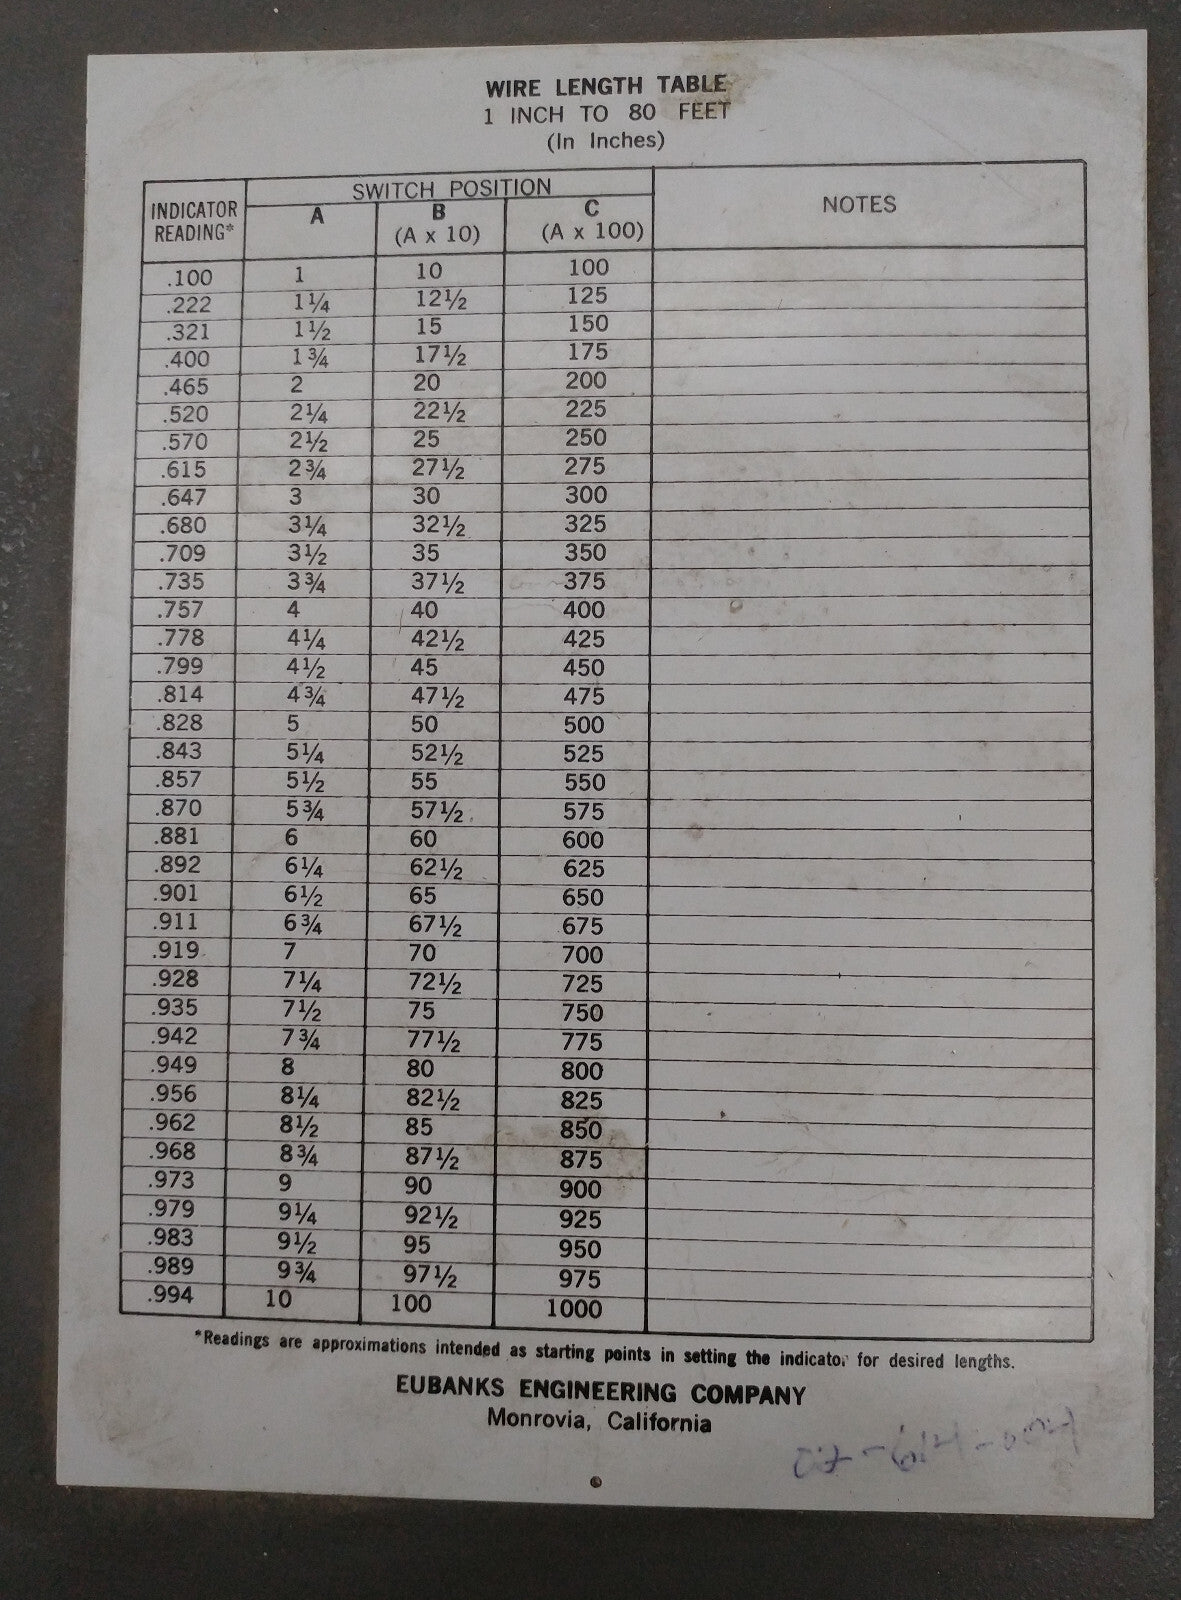 WIRE LENGTH TABLE
1 INCH TO 80 FEET
(In Inches)
INDICATOR READING* SWITCH POSITION NOTES
A B (A x 10) C (A x 100)
.100 1 10 100
.222 1¼ 12½ 125
.321 1½ 15 150
.400 1¾ 17½ 175
.465 2 20 200
.520 2¼ 22½ 225
.570 2½ 25 250
.615 2¾ 27½ 275
.647 3 30 300
.680 3¼ 32½ 325
.709 3½ 35 350
.735 3¾ 37½ 375
.757 4 40 400
.778 4¼ 42½ 425
.799 4½ 45 450
.814 4¾ 47½ 475
.828 5 50 500
.843 5¼ 52½ 525
.857 5½ 55 550
.870 5¾ 57½ 575
.881 6 60 600
.892 6¼ 62½ 625
.901 6½ 65 650
.911 6¾ 67½ 675
.919 7 70 700
.928 7¼ 72½ 725
.935 7½ 75 750
.942 7¾ 77½ 775
.949 8 80 800
.956 8¼ 82½ 825
.962 8½ 85 850
.968 8¾ 87½ 875
.973 9 90 900
.979 9¼ 92½ 925
.983 9½ 95 950
.989 9¾ 97½ 975
.994 10 100 1000
*Readings are approximations intended as starting points in setting the indicator for desired lengths.
EUBANKS ENGINEERING COMPANY
Monrovia, California